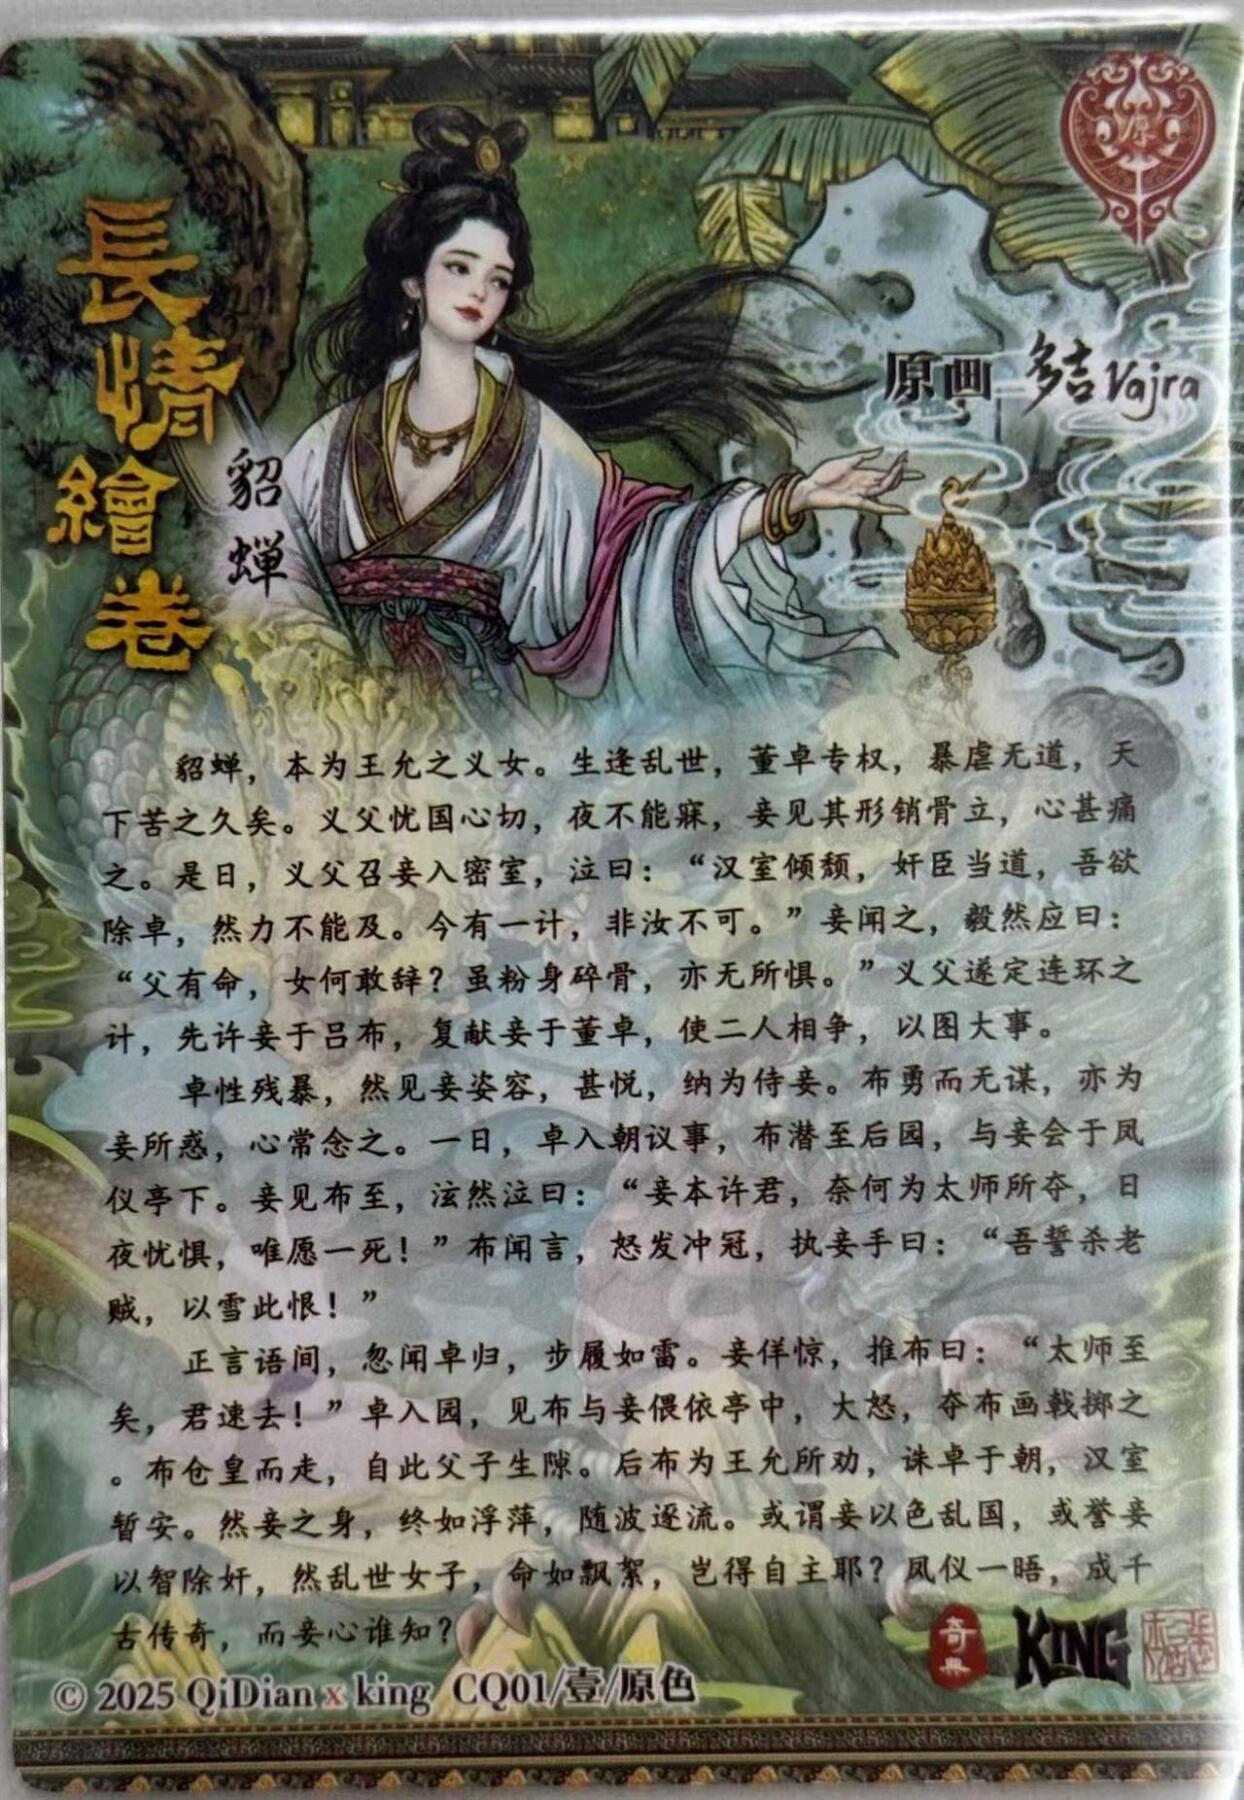 原
長情繪卷
貂蝉
原画 多吉Vajra
貂蝉，本为王允之义女。生逢乱世，董卓专权，暴虐无道，天
下苦之久矣。义父忧国心切，夜不能寐，妾见其形销骨立，心甚痛
之。是日，义父召妾入密室，泣曰：“汉室倾颓，奸臣当道，吾欲
除卓，然力不能及。今有一计，非汝不可。”妾闻之，毅然应曰：
“父有命，女何敢辞？虽粉身碎骨，亦无所惧。”义父遂定连环之
计，先许妾于吕布，复献妾于董卓，使二人相争，以图大事。
卓性残暴，然见妾姿容，甚悦，纳为侍妾。布勇而无谋，亦为
妾所惑，心常念之。一日，卓入朝议事，布潜至后园，与妾会于凤
仪亭下。妾见布至，泫然泣曰：“妾本许君，奈何为太师所夺，日
夜忧惧，唯愿一死！”布闻言，怒发冲冠，执妾手曰：“吾誓杀老
贼，以雪此恨！”
正言语间，忽闻卓归，步履如雷。妾佯惊，推布曰：“太师至
矣，君速去！”卓入园，见布与妾偎依亭中，大怒，夺布画戟掷之
。布仓皇而走，自此父子生隙。后布为王允所劝，诛卓于朝，汉室
暂安。然妾之身，终如浮萍，随波逐流。或谓妾以色乱国，或誉妾
以智除奸，然乱世女子，命如飘絮，岂得自主耶？凤仪一晤，成千
古传奇，而妾心谁知？
奇典 KING
© 2025 QiDian x king CQ01/壹/原色